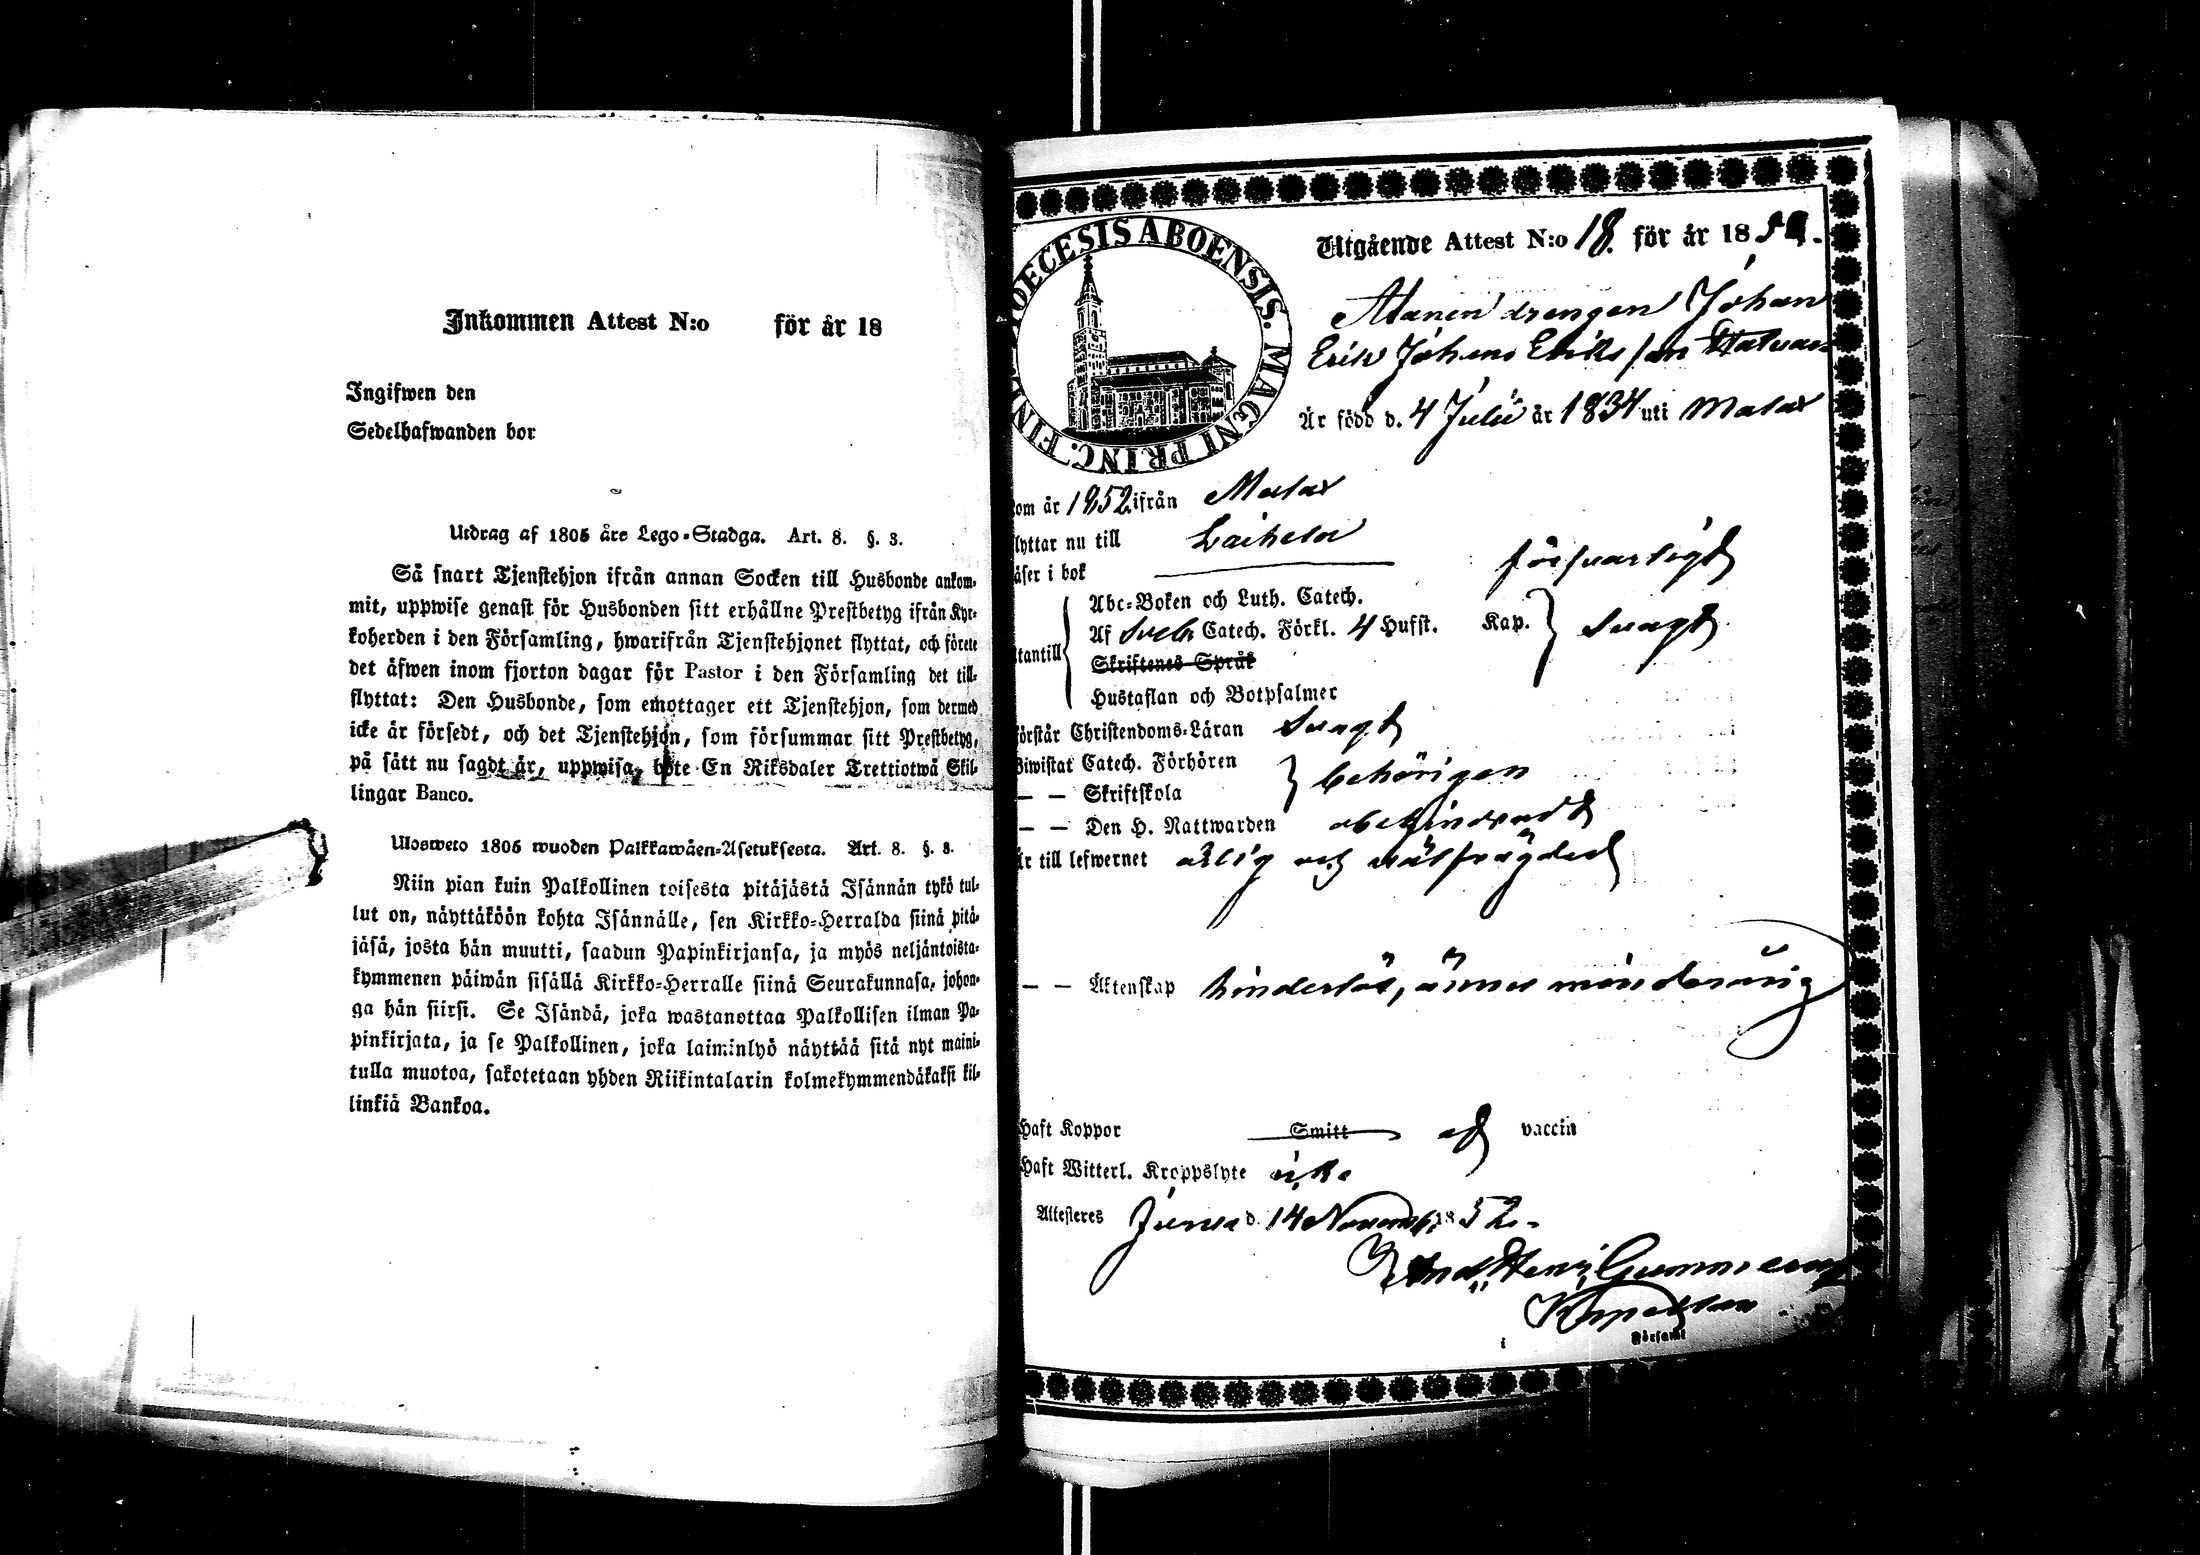 Inkommen Attest N:o för år 18
Ingifwen den
Sedelhafwanden bor
Utdrag af 1805 års Lego-Stadga. Art. 8. §. 3.
Så snart Tjenstehjon ifrån annan Socken till Husbonde ankom-
mit, uppwise genast för Husbonden sitt erhållne Prestbetyg ifrån Kyr-
koherden i den Församling, hwarifrån Tjenstehjonet flyttat, och förete
det äfwen inom fjorton dagar för Pastor i den Församling det till-
flyttat: Den Husbonde, som emottager ett Tjenstehjon, som dermed
icke är försedt, och det Tjenstehjon, som försummar sitt Prestbetyg,
på sätt nu sagdt är, uppwisa, böte En Riksdaler Trettiotwå Skil-
lingar Banco.
Ulosweto 1805 wuoden Palkkawäen-Asetuksesta. Art. 8. §. 3.
Niin pian kuin Palkollinen toisesta pitäjästä Isännän tykö tul-
lut on, näyttäköön kohta Isännälle, sen Kirkko-Herralda siinä pitä-
jäsä, josta hän muutti, saadun Papinkirjansa, ja myös neljäntoista-
kymmenen päiwän sisällä Kirkko-Herralle siinä Seurakunnasa, johon-
ga hän siirsi. Se Isändä, joka wastanottaa Palkollisen ilman Pa-
pinkirjata, ja se Palkollinen, joka laiminlyö näyttää sitä nyt maini-
tulla muotoa, sakotetaan yhden Riikintalarin kolmekymmendäkaksi kil-
linkiä Bankoa.
DIOECESIS ABOENSIS. MAGNI PRINC. FINL
Utgående Attest N:o 18. för år 185
drengen Johan
Erik Johans Eriks son
Är född d. 4 Julii år 1834 uti Malax
om år 1852 ifrån Malax
lyttar nu till Laihela
äser i bok försvarligt
Abc-Boken och Luth. Catech.
Af Sveb. Catech. Förkl. 4 Hufst. Kap. Svagt
tantill
Skriftenes Språk
Hustaflan och Botpsalmer
örstår Christendoms-Läran Svagt
Biwistat Catech. Förhören behörigen
— — Skriftskola
— — Den H. Nattwarden obehindradt
är till lefwernet ärlig och välfrägdad
— — Äktenskap hinderlös, ännu minderårig
Haft Koppor Smitt af vaccin
Haft Witterl. Kroppslyte icke
Attesteres d. 14 Novemb. 1852.
And. Henr.
Kapellan
i Församl